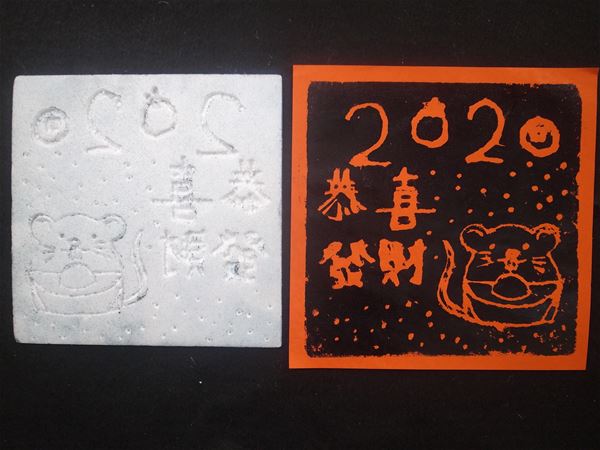 2020
恭喜
發財